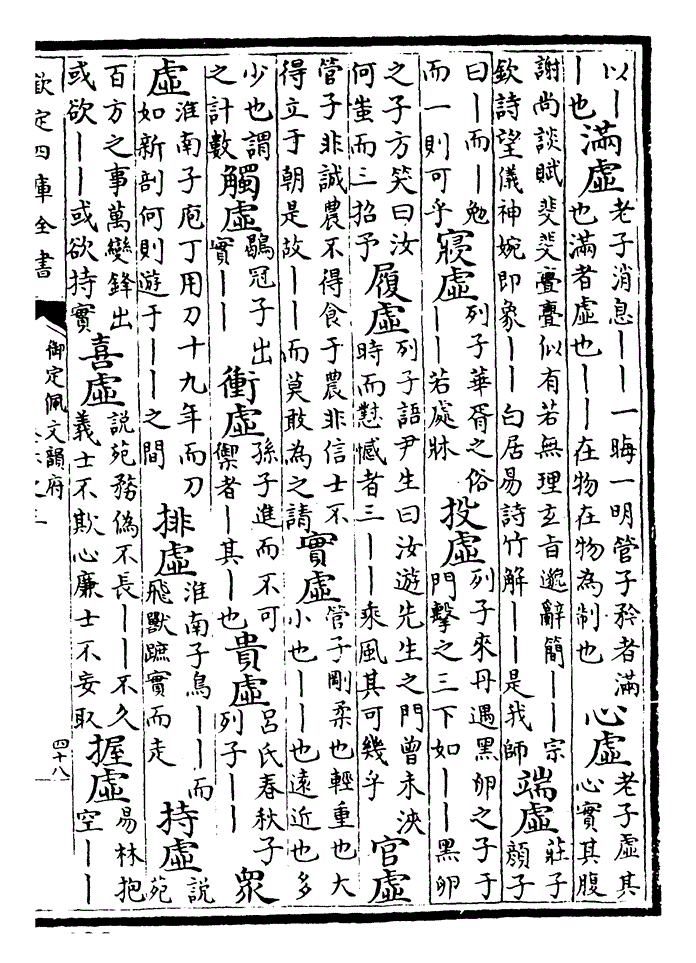 以｜
｜也
滿虛
老子消息｜｜一晦一明管子矜者滿
也滿者虛也｜｜在物在物為制也
心虛
老子虛其
心實其腹
謝尚談賦斐斐亹亹似有若無理玄旨邈辭簡｜｜宗
欽詩望儀神婉即象｜｜白居易詩竹解｜｜是我師
端虛
莊子
顔子
曰｜而｜勉
而一則可乎
寢虛
列子華胥之俗
｜｜若處牀
投虛
列子來丹遇黑卵之子于
門擊之三下如｜｜黑卵
之子方笑曰汝
何蚩而三招予
履虛
列子語尹生曰汝遊先生之門曾未浹
時而懟憾者三｜｜乘風其可幾乎
官虛
管子非誠農不得食于農非信士不
得立于朝是故｜｜而莫敢為之請
實虛
管子剛柔也輕重也大
小也｜｜也遠近也多
少也謂
之計數
觸虛
鶡冠子出
實｜｜
衝虛
孫子進而不可
禦者｜其｜也
貴虛
呂氏春秋子
列子｜｜
眾
虛
淮南子庖丁用刀十九年而刀
如新剖何則遊于｜｜之間
排虛
淮南子鳥｜｜而
飛獸蹠實而走
持虛
說
苑
百方之事萬變鋒出
或欲｜｜或欲持實
喜虛
說苑務偽不長｜｜不久
義士不欺心廉士不妄取
握虛
易林抱
空｜｜
欽定四庫全書
御定佩文韻府
四十八